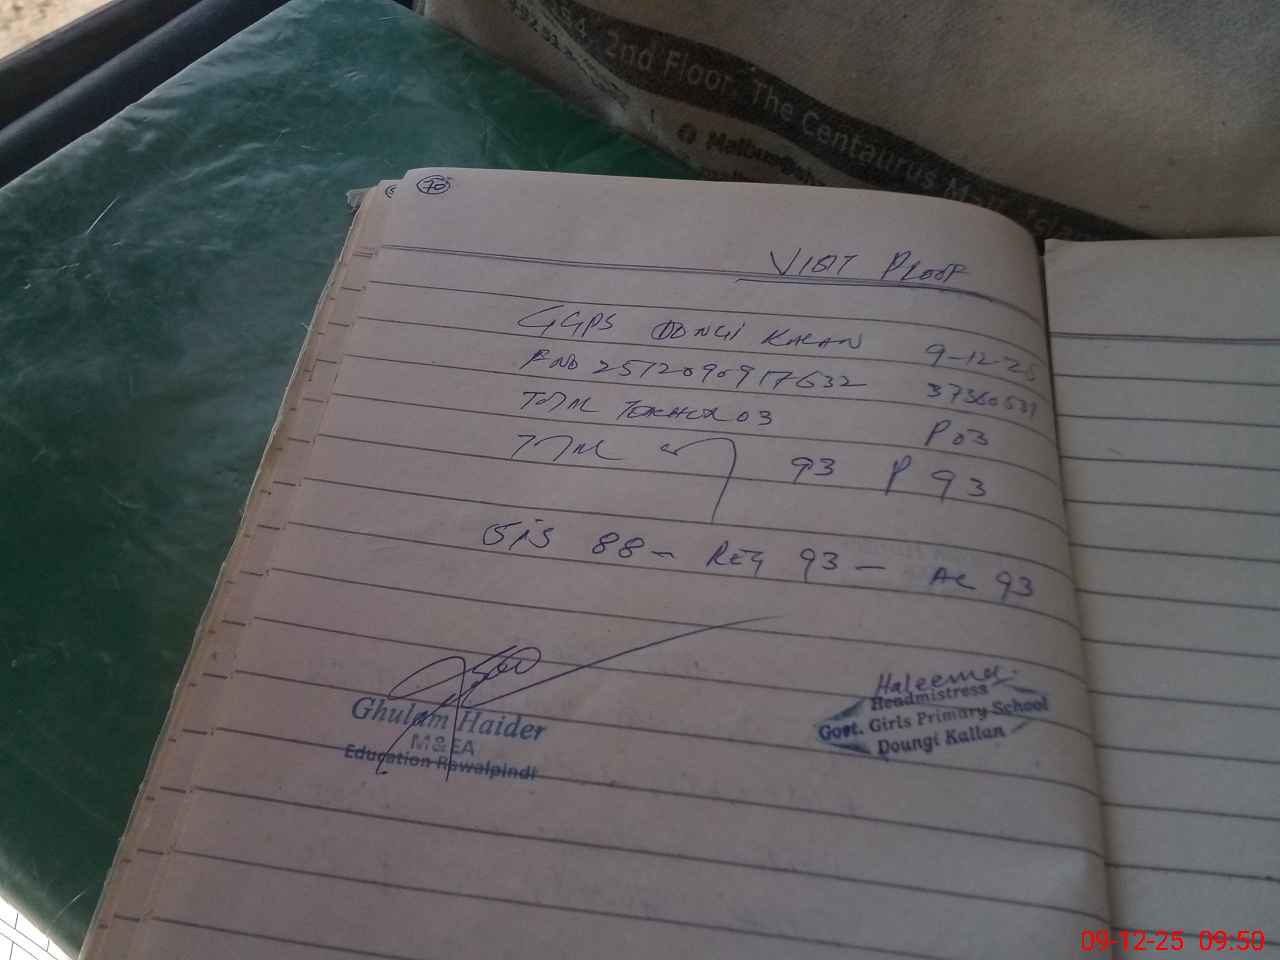 54, 2nd Floor, The Centaurus Mall, Isla
70
VISIT PROOF
GGPS DONGI KALAN 9-12-25
P NO 2512090917632 37360531
TOTAL TEACHER 03 P 03
TOTAL 93 P 93
SIS 88 - REG 93 - AC 93
Ghulam Haider
M&EA
Education Rawalpindi
Haleema
Headmistress
Govt. Girls Primary School
Doungi Kallan
09-12-25 09:50